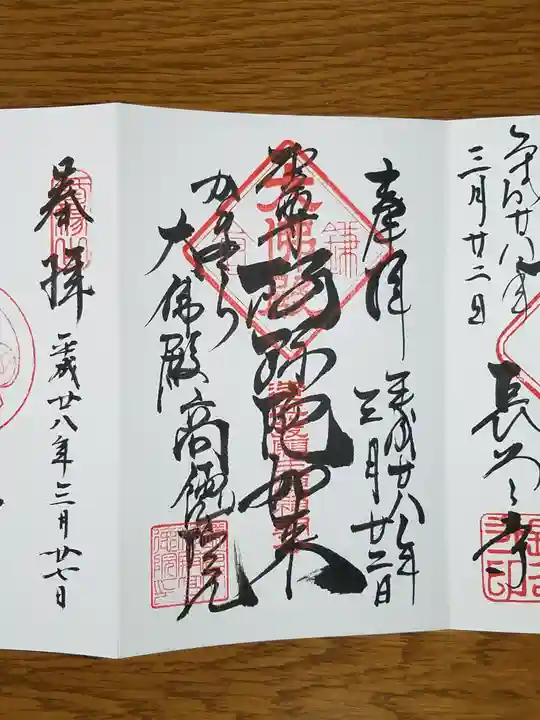 平成廿八年
三月廿二日
長谷寺
奉拝
平成廿八年
三月廿二日
本尊阿弥陀如来
かまくら
大佛殿高徳院
奉拝
平成廿八年三月廿七日